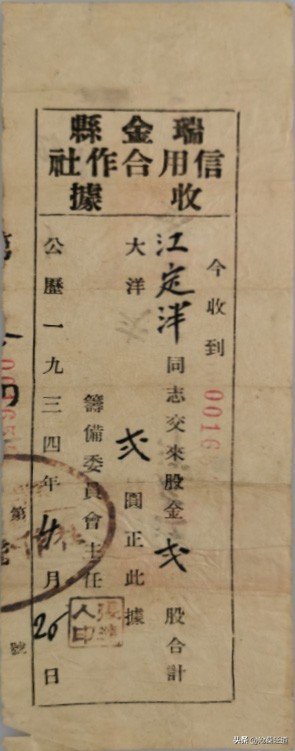 瑞金縣
信用合作社
收據
今收到
0016
江定洋同志交來股金弍股合計
大洋弍圓正此據
籌備委員會主任
公歷一九三四年月日
第號
头条